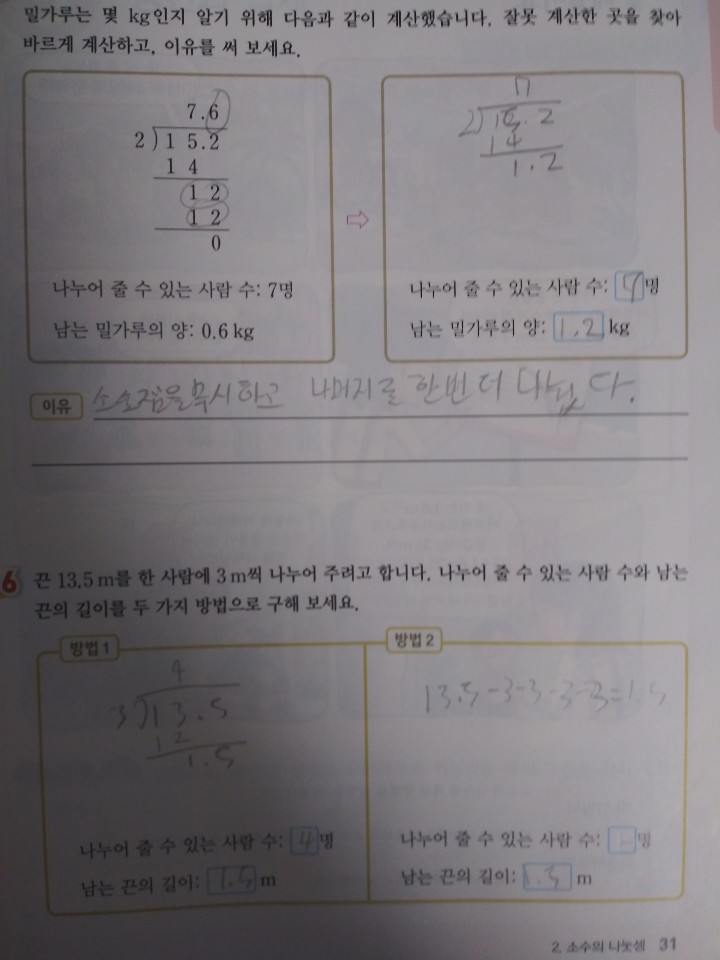 밀가루는 몇 kg인지 알기 위해 다음과 같이 계산했습니다. 잘못 계산한 곳을 찾아
바르게 계산하고, 이유를 써 보세요.
7.6
2)15.2
14
12
12
0
나누어 줄 수 있는 사람 수: 7명
남는 밀가루의 양: 0.6 kg
⇨
7
2)15.2
14
1.2
나누어 줄 수 있는 사람 수: 7명
남는 밀가루의 양: 1.2 kg
이유 소숫점을무시하고 나머지를 한번 더 다.
6 끈 13.5 m를 한 사람에 3 m씩 나누어 주려고 합니다. 나누어 줄 수 있는 사람 수와 남는
끈의 길이를 두 가지 방법으로 구해 보세요.
방법 1
4
3)13.5
12
1.5
나누어 줄 수 있는 사람 수: 4명
남는 끈의 길이: 1.5 m
방법 2
13.5-3-3-3-3=1.5
나누어 줄 수 있는 사람 수: 명
남는 끈의 길이: 1.5 m
2. 소수의 나눗셈 31